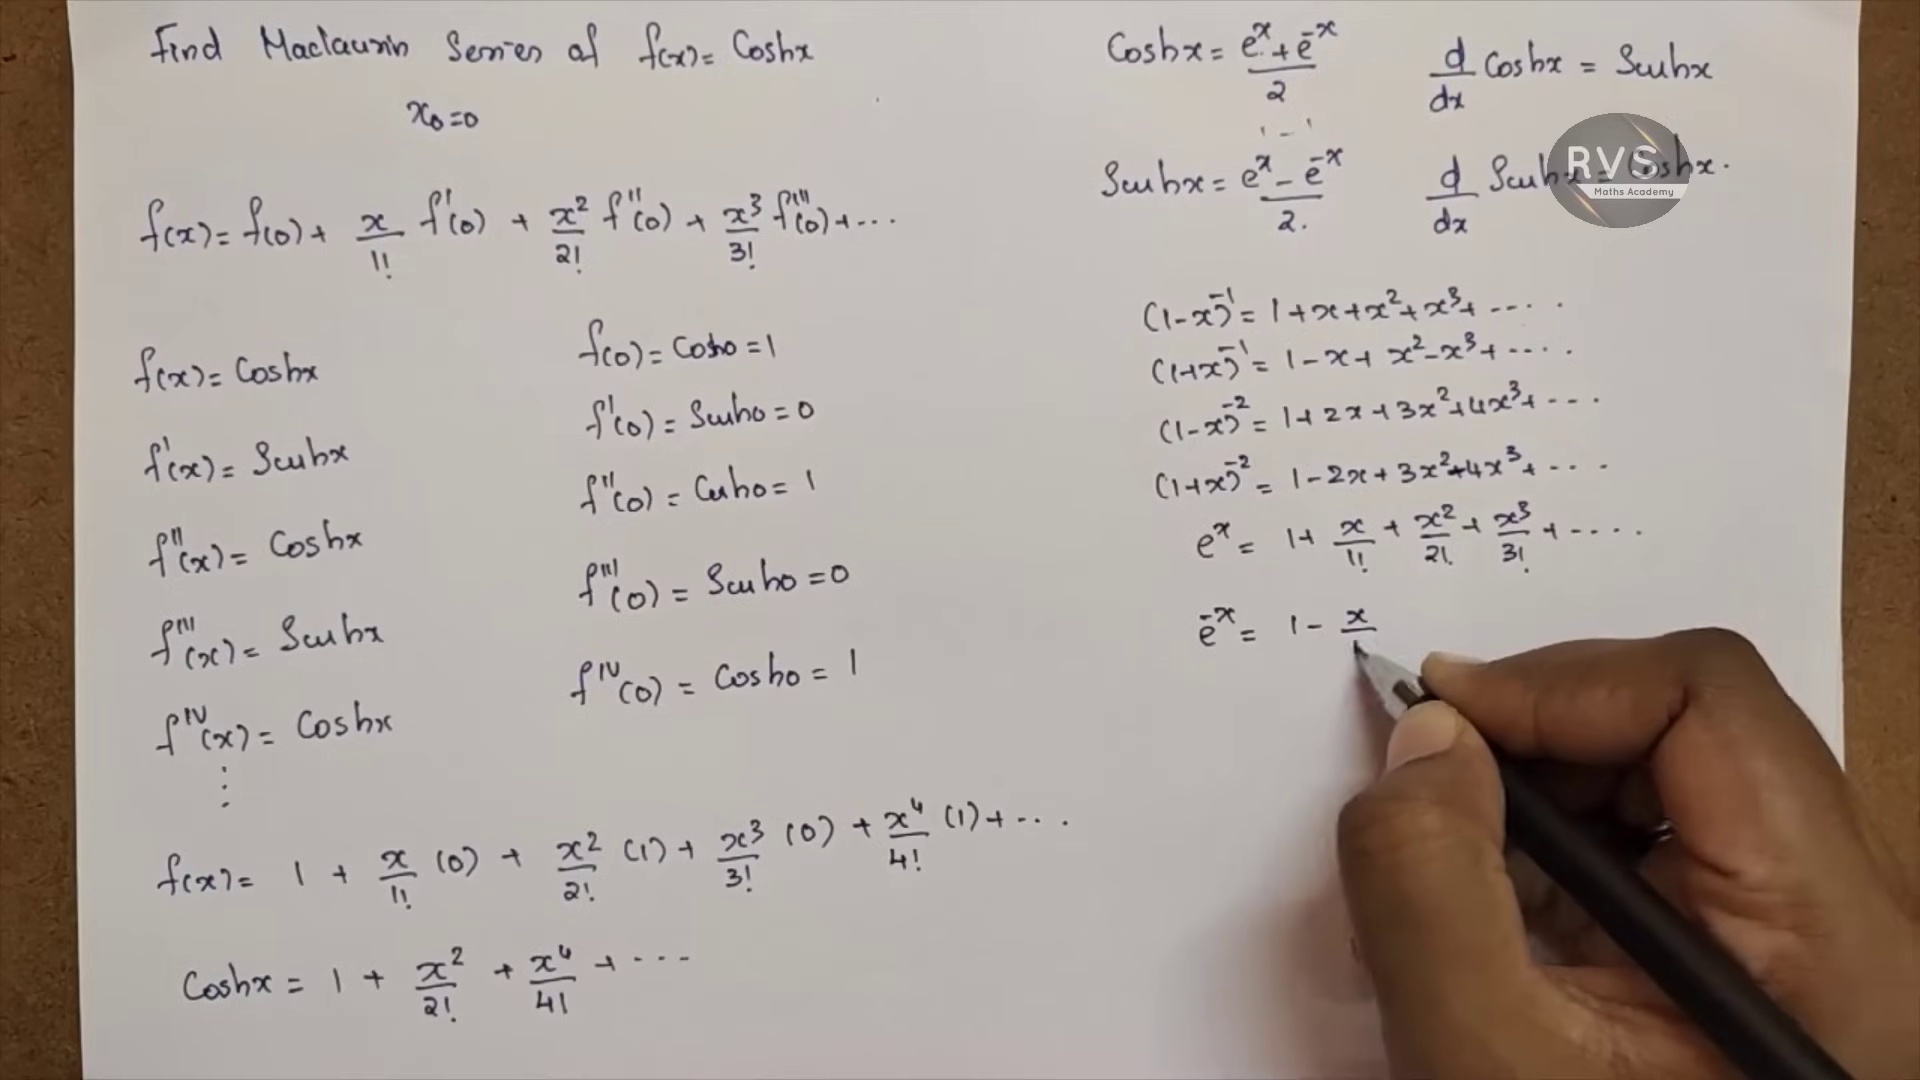 Find Maclaurin Series of f(x) = Coshx
x₀=0
f(x) = f(0) + x/1! f'(0) + x²/2! f''(0) + x³/3! f'''(0) + ...
f(x) = Coshx
f'(x) = Sinhx
f''(x) = Coshx
f'''(x) = Sinhx
f^IV(x) = Coshx
⋮
f(0) = Cosh0 = 1
f'(0) = Sinh0 = 0
f''(0) = Cosh0 = 1
f'''(0) = Sinh0 = 0
f^IV(0) = Cosh0 = 1
f(x) = 1 + x/1! (0) + x²/2! (1) + x³/3! (0) + x⁴/4! (1) + ...
Coshx = 1 + x²/2! + x⁴/4! + ...
Coshx = (e^x + e^-x)/2
d/dx Coshx = Sinhx
1 - 1
Sinhx = (e^x - e^-x)/2.
d/dx Sinhx = Coshx.
RVS
Maths Academy
(1-x)^-1 = 1 + x + x² + x³ + ....
(1+x)^-1 = 1 - x + x² - x³ + ....
(1-x)^-2 = 1 + 2x + 3x² + 4x³ + ...
(1+x)^-2 = 1 - 2x + 3x² - 4x³ + ...
e^x = 1 + x/1! + x²/2! + x³/3! + ....
e^-x = 1 - x/